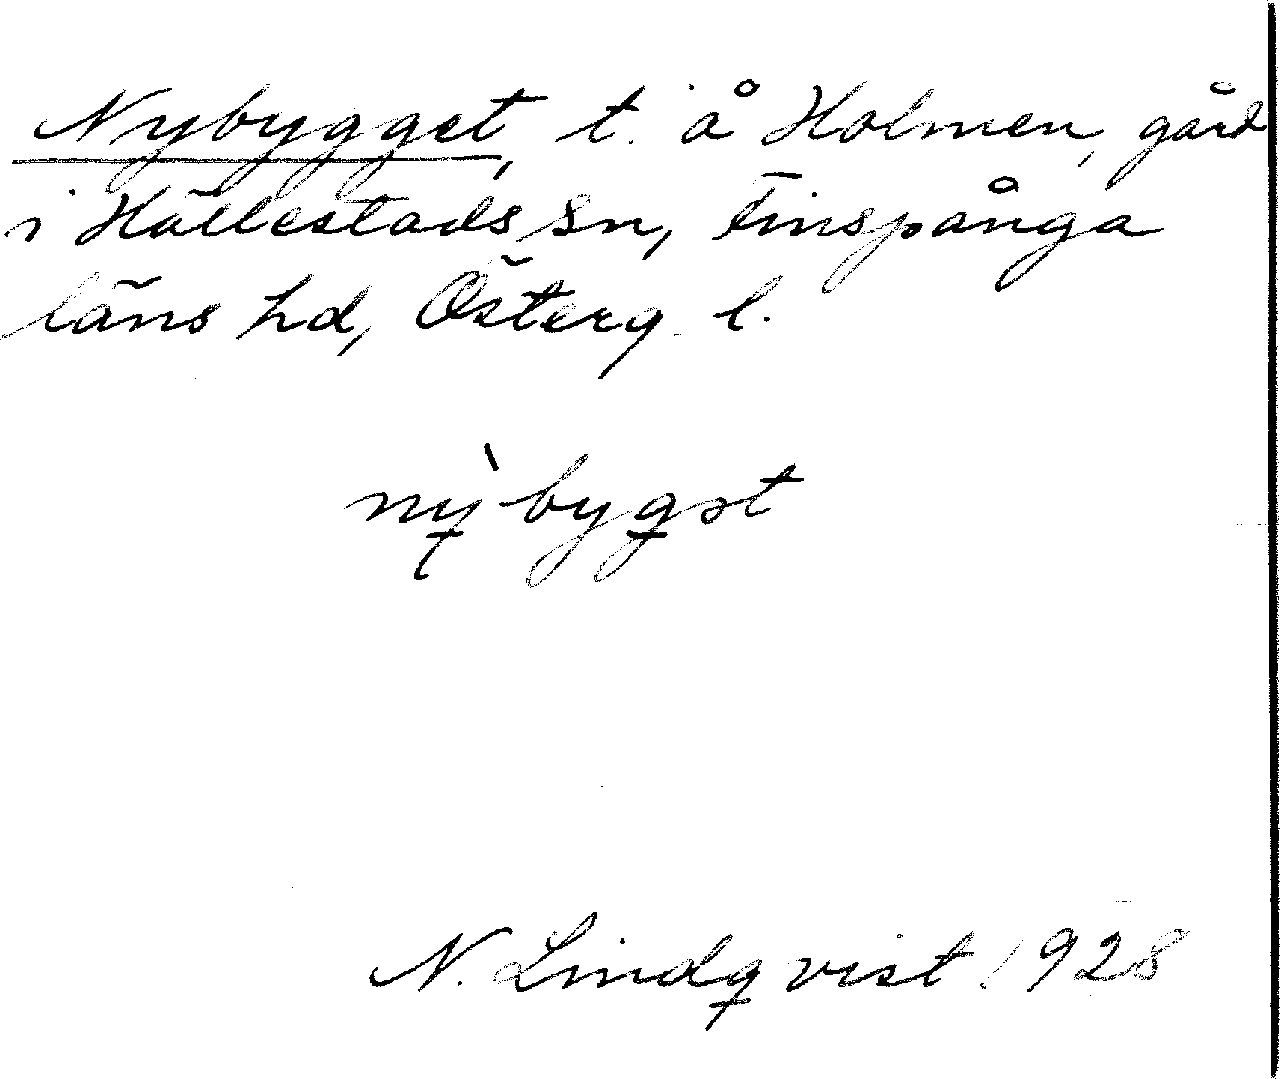 Nybygget, t. å Holmen, gård
i Hällestads sn, Finspånga
läns hd, Österg. l.
nỳbygət
N. Lindqvist 1928